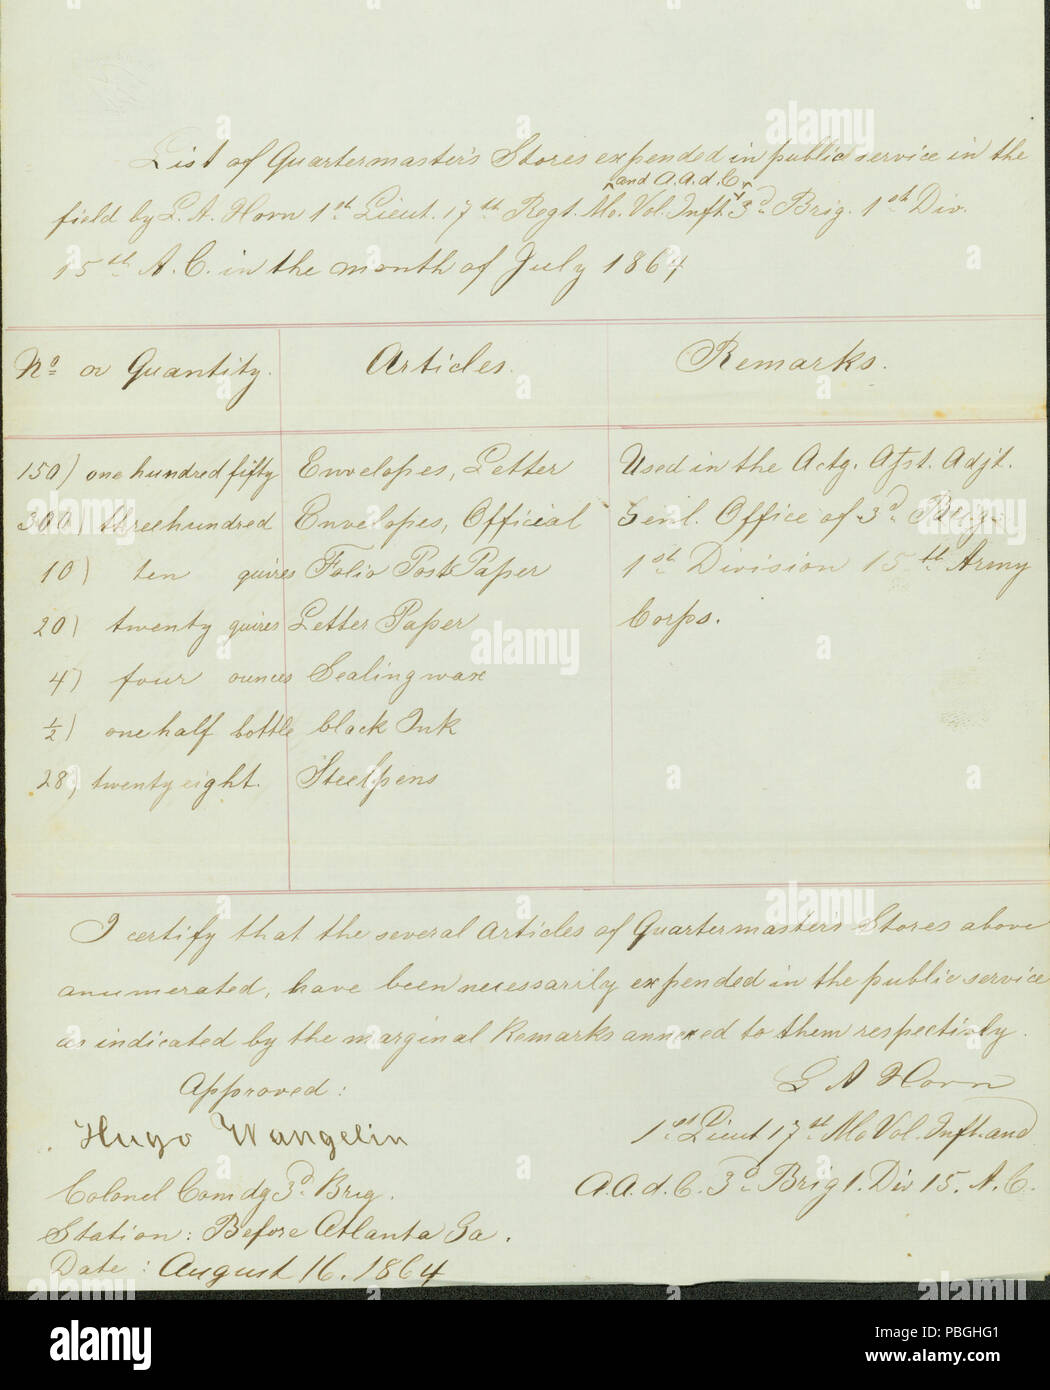 List of Quartermaster's Stores expended in public service in the
and A.A.d.C.
field by L. A. Horn 1st Lieut. 17th Regt. Mo. Vol. Inft. 3d Brig. 1st Div.
15th A. C. in the month of July 1864
No or Quantity. Articles. Remarks.
150) one hundred fifty Envelopes, Letter Used in the Actg. Asst. Adjt.
300) three hundred Envelopes, Official Genl. Office of 3d Brig.
10) ten quires Folio Post Paper 1st Division 15th Army
20) twenty quires Letter Paper Corps.
4) four ounces Sealing wax
½) one half bottle black Ink
28) twenty eight. Steelpens
I certify that the several Articles of Quartermaster's Stores above
anumerated, have been necessarily expended in the public service
as indicated by the marginal Remarks annexed to them respectivly.
Approved: L A Horn
Hugo Wangelin 1st Lieut 17th Mo Vol. Inft. and
Colonel Comdg 3d Brig. A.A.d.C. 3d Brig 1. Div 15. A.C.
Station: Before Atlanta Ga.
Date: August 16. 1864
alamy
alamy
Image ID: PBGHG1
www.alamy.com